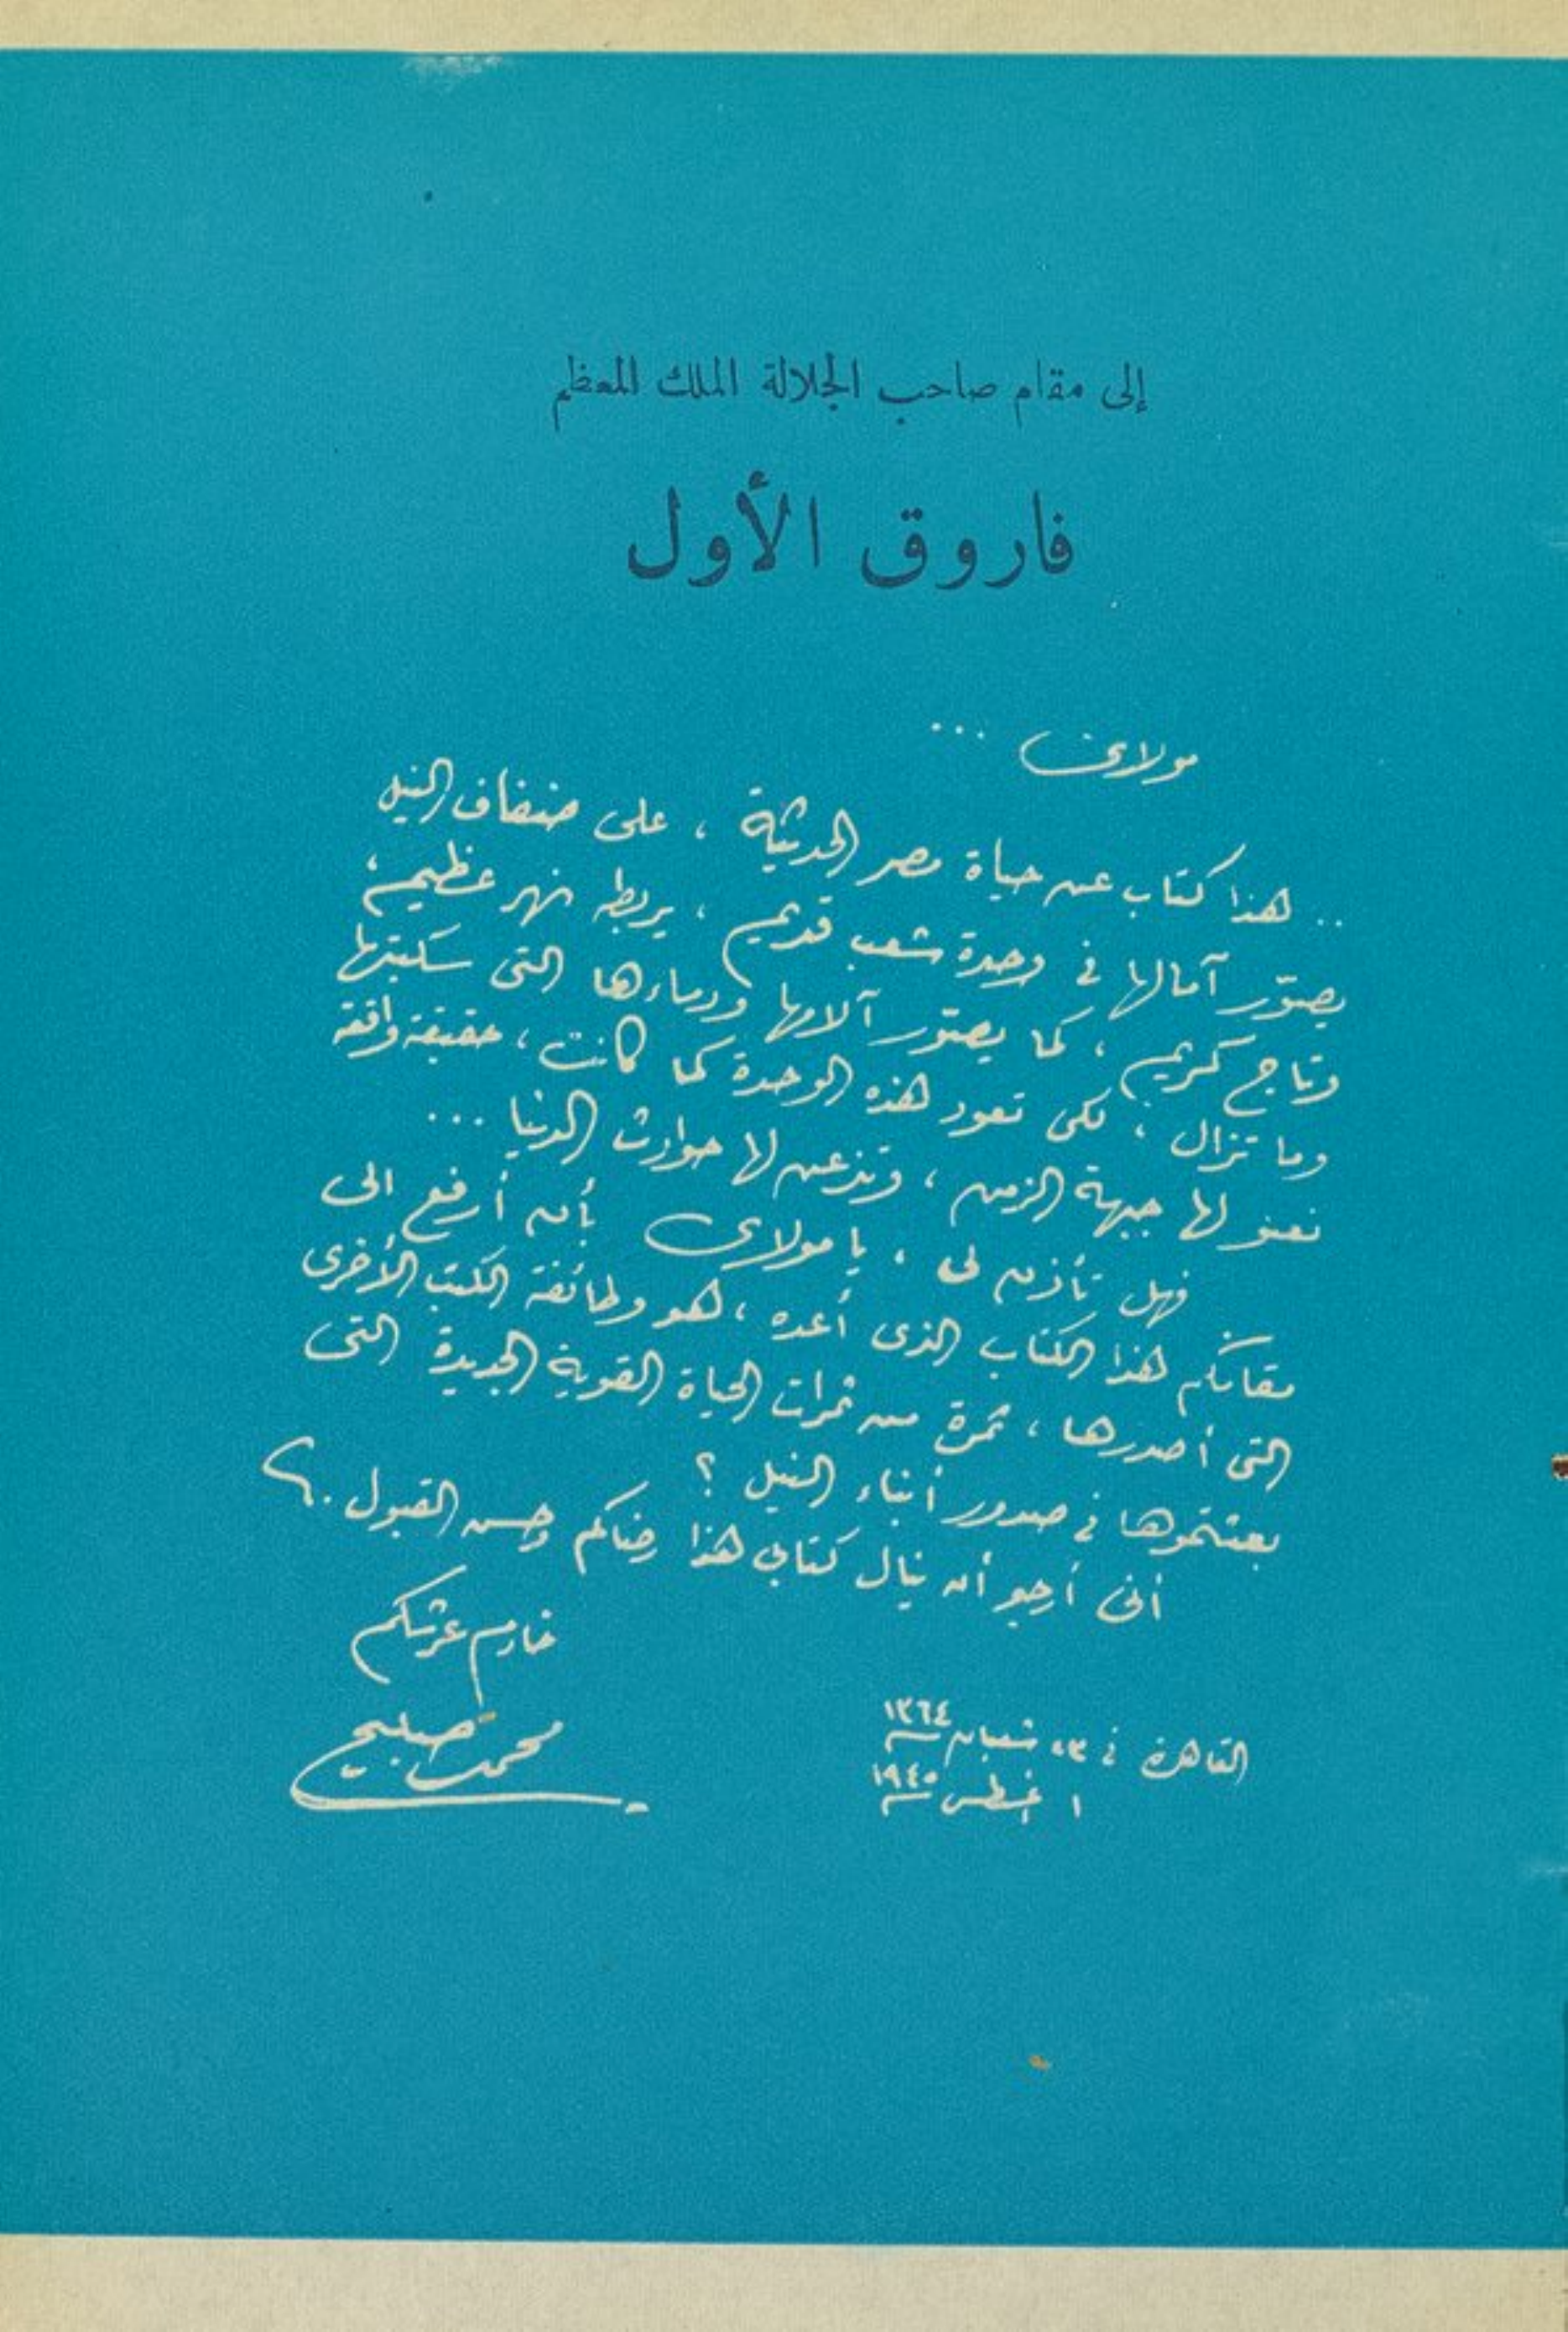 إلى مقام صاحب الجلالة الملك المعظم
فاروق الأول
مولاى ...
.. هذا كتاب عن حياة مصر الحديثة ، على ضفاف النيل
يصور آمالها فى وحدة شعب قديم ، يربطه نهر عظيم ،
وتاج كريم ، كما يصور آلامها ودماءها التى سكبتها
وما تزال ، لكى تعود هذه الوحدة كما كانت ، حقيقة واقعة
تعنو لها جبهة الزمن ، وتذعن لها حوادث الدنيا ...
فهل تأذن لى ، يا مولاى بأن أرفع الى
مقامكم هذا الكتاب الذى أعده ، هو وطائفة الكتب الأخرى
التى أصدرها ، ثمرة من ثمرات الحياة القوية الجديدة التى
بعثتموها فى صدور أبناء النيل ؟
أنى أرجو أن ينال كتابى هذا رضاكم وحسن القبول .
خادم عرشكم
محمد صبيح
القاهرة فى ٢٣ شعبان ١٣٦٤
١ أغسطس ١٩٤٥